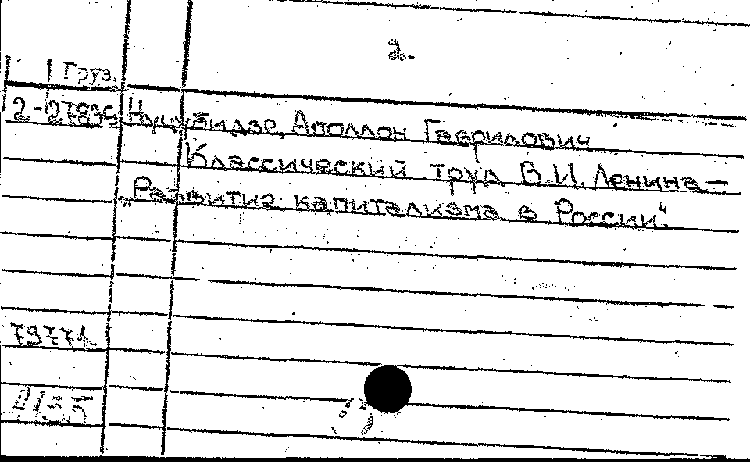 2.
Груз.
2-27835 Нуцубидзе, Аполлон Гаврилович
Классический труд В.И. Ленина—
„Развитие капитализма в России“.
79771